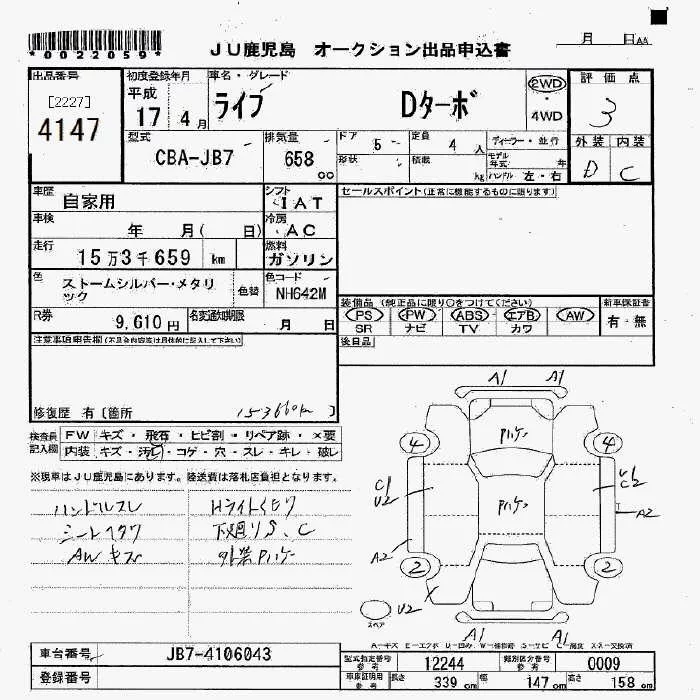 *0022059*
JU鹿児島 オークション出品申込書
月 日AA
出品番号
[2227]
4147
初度登録年月
平成
17 4月
車名・グレード
ライフ Dターボ
2WD
・
4WD
評価点
3
型式
CBA-JB7
排気量
658
cc
ドア
5
定員
4 人
形状
積載
kg
ディーラー・並行
モデル年式 年
ハンドル 左・右
外装 内装
D C
車歴
自家用
シフト
IAT
セールスポイント(正常に機能するものに限ります)
車検
年 月( 日)
冷房
AC
走行
15万3千659 km
燃料
ガソリン
色
ストームシルバー・メタリック
色替
色コード
NH642M
装備品 (純正品に限り○をつけてください)
PS PW ABS エアB AW
SR ナビ TV カワ
新車保証書
有・無
R券
9,610円
名変通知期限
月 日
後日品
注意事項申告欄(不具合内容欄は具体的に記入して下さい)
修復歴 有〔箇所 〕
153660km
検査員記入欄
FW キズ・飛石・ヒビ割・リペア跡・×要
内装 キズ・汚レ・コゲ・穴・スレ・キレ・破レ
※現車はJU鹿児島にあります。陸送費は落札店負担となります。
ハンドルスレ Hライトくもり
シートヘタリ 下廻りS、C
AWキズ 外装Pハゲ
A1 A1
Pハゲ
4 4
C1
U2
Pハゲ
C2
A2
A2
2 2
U2
スペア
A1 A1
A-キズ E-エクボ U-凹み W-補修跡 S-サビ C-腐食 X-交換済
車台番号
JB7-4106043
登録番号
型式指定番号
参考
12244
類別区分番号
参考
0009
車庫証明用
参考
長さ 339cm 幅 147cm 高さ 158cm